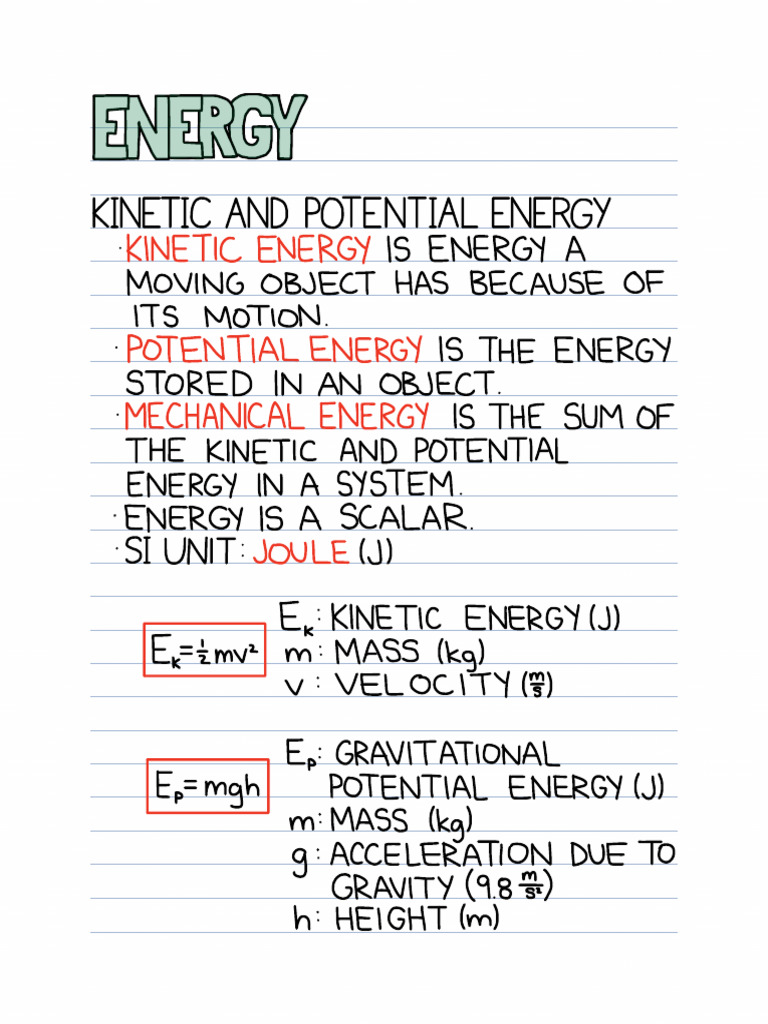 ENERGY
KINETIC AND POTENTIAL ENERGY
·KINETIC ENERGY IS ENERGY A
MOVING OBJECT HAS BECAUSE OF
ITS MOTION.
·POTENTIAL ENERGY IS THE ENERGY
STORED IN AN OBJECT.
·MECHANICAL ENERGY IS THE SUM OF
THE KINETIC AND POTENTIAL
ENERGY IN A SYSTEM.
·ENERGY IS A SCALAR.
·SI UNIT: JOULE (J)
Eₖ: KINETIC ENERGY (J)
Eₖ=½mv²
m: MASS (kg)
v: VELOCITY (m/s)
Eₚ: GRAVITATIONAL
POTENTIAL ENERGY (J)
Eₚ=mgh
m: MASS (kg)
g: ACCELERATION DUE TO
GRAVITY (9.8 m/s²)
h: HEIGHT (m)